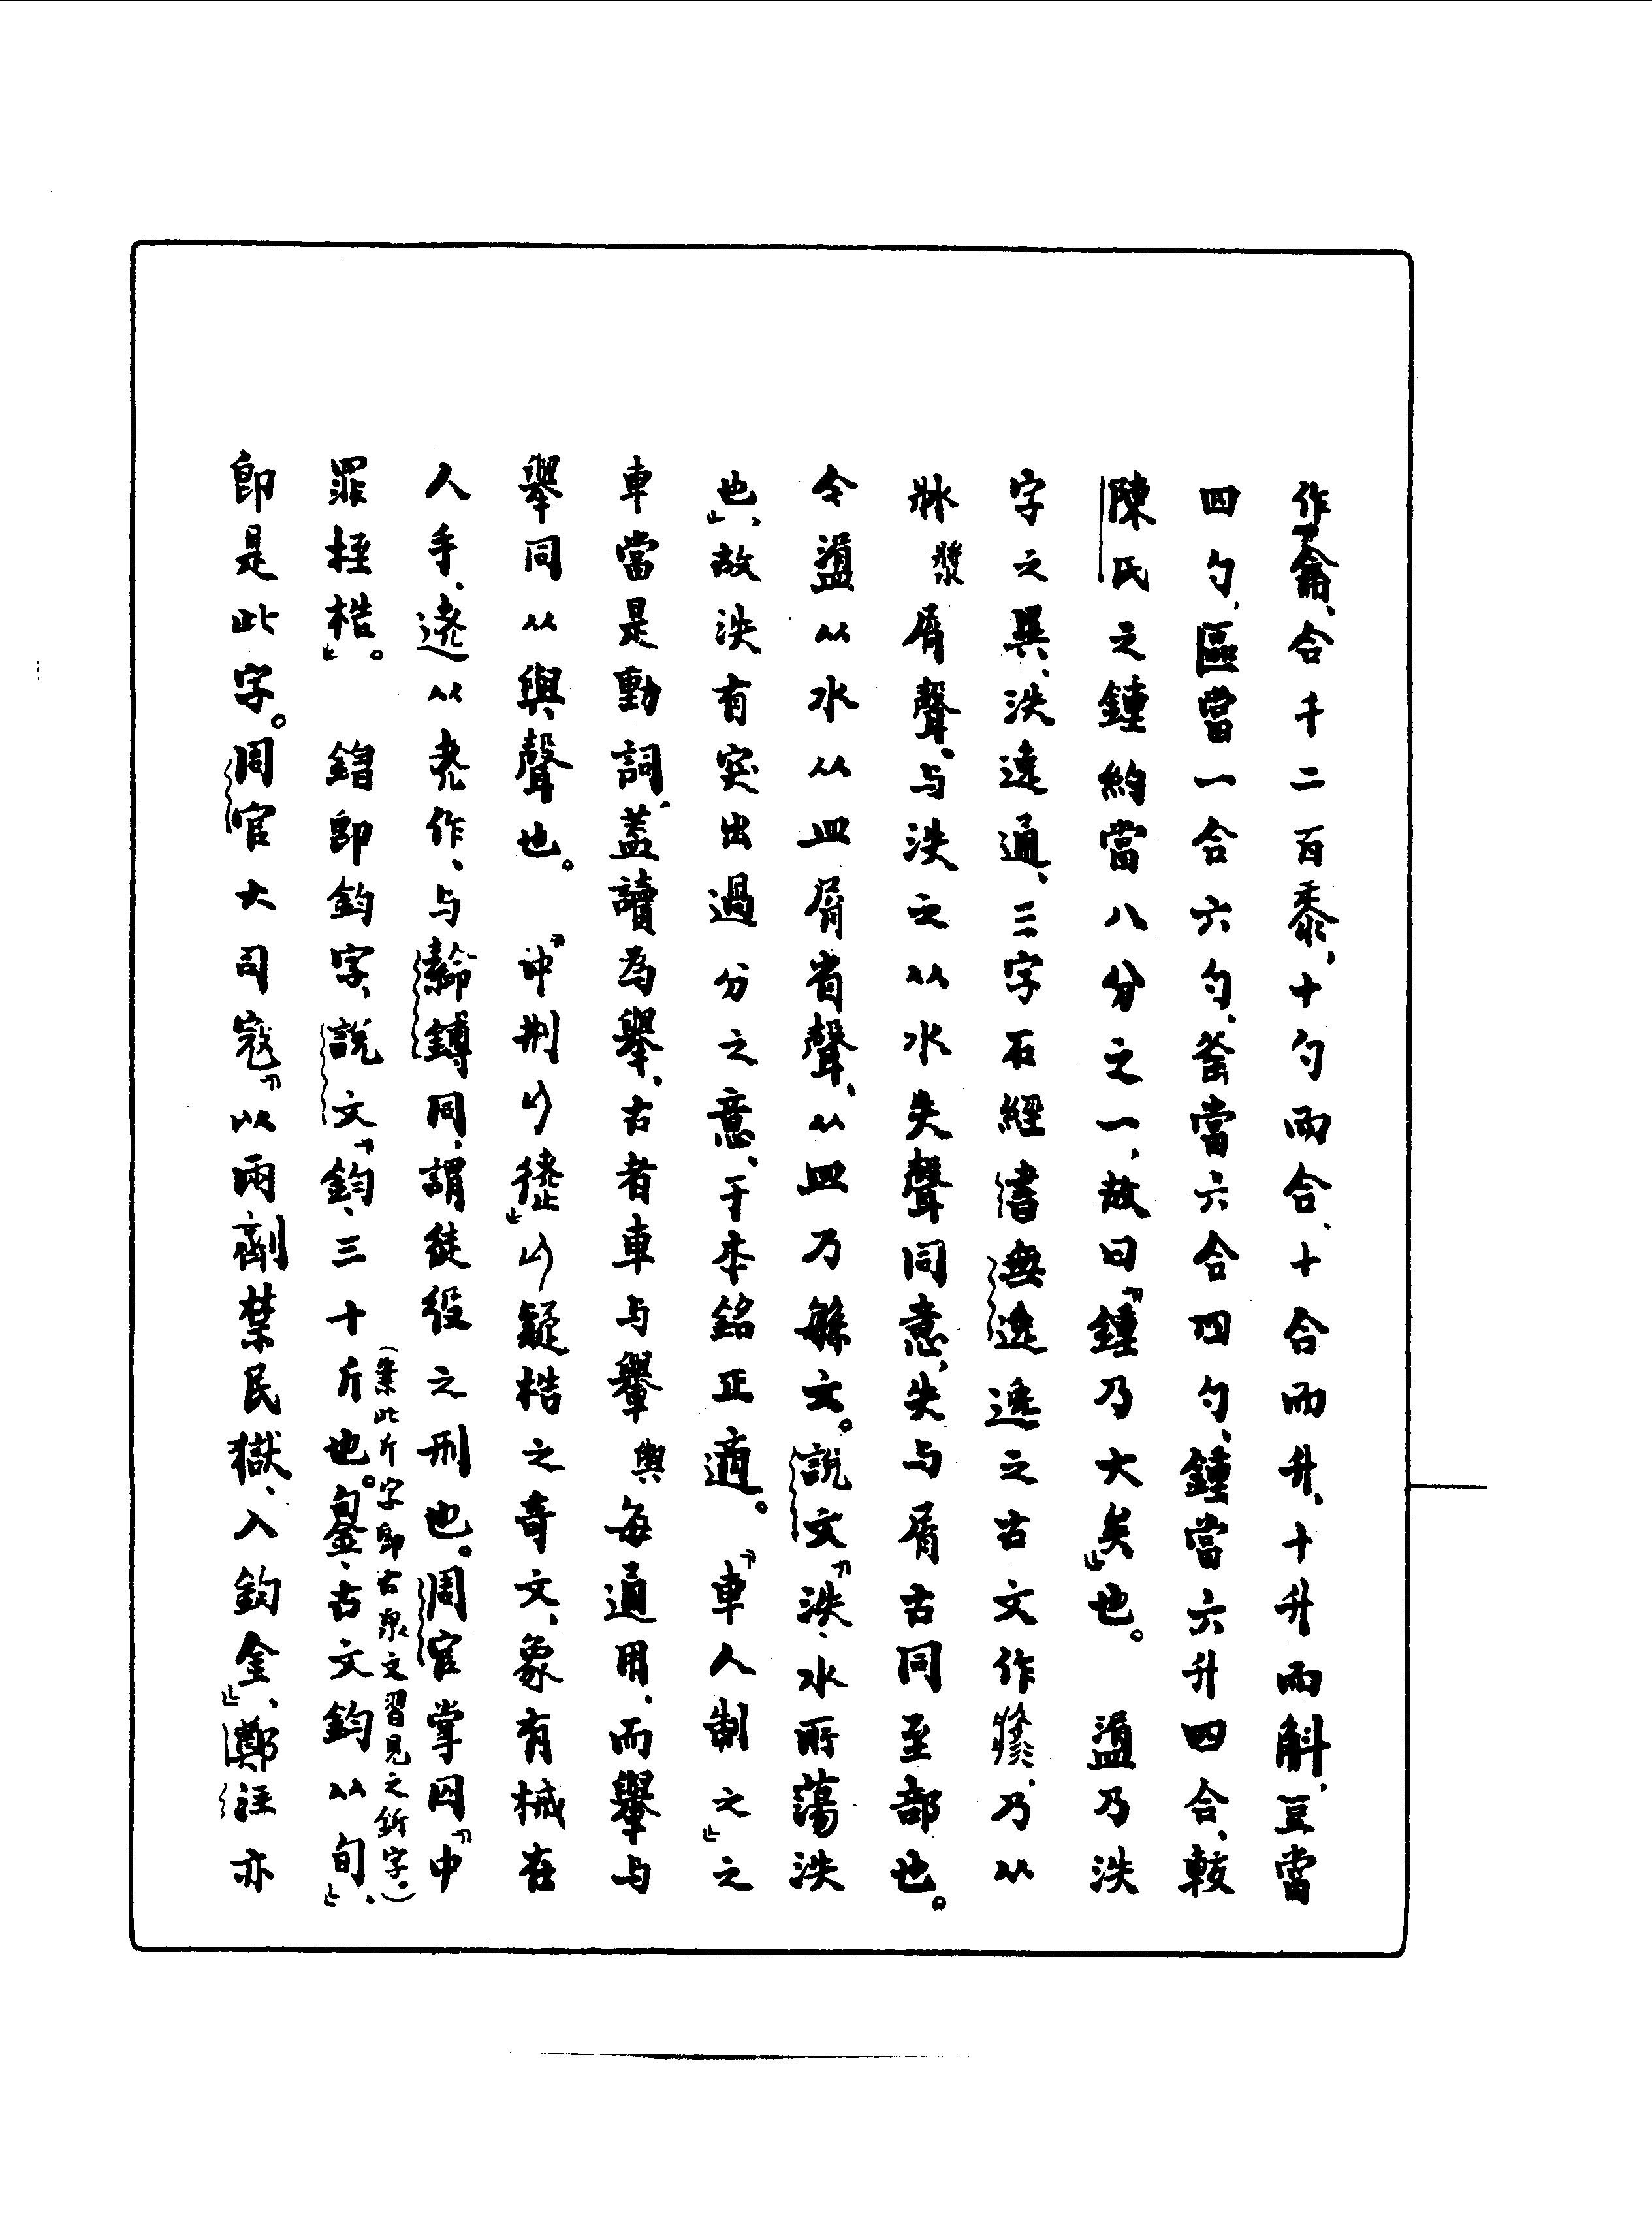 作龠、合千二百黍、十勺而合、十合而升、十升而斛、豆當
四勺、區當一合六勺、釜當六合四勺、鍾當六升四合、較
陳氏之鍾約當八分之一、故曰「鍾乃大矣」也。 盪乃泆
字之異、泆逸通、三字石經書無逸逸之古文作、乃从
屑聲、与泆之从水失聲同意、失与屑古同至部也。
今盪从水从皿屑省聲、从皿乃緐文。說文「泆、水所蕩泆
也」、故泆有突出過分之意、于本銘正適。 「車人制之」之
車當是動詞、蓋讀為擧、古者車与轝輿每通用、而擧与
擧同从與聲也。 「中刑」疑梏之奇文、象有械在
人手、从作、与鎛同、謂徒役之刑也。周官掌囚「中
罪桎梏」。 鍿即鈞字、說文「鈞、三十斤也。銞、古文鈞从旬」、
（案此斤字即古泉文習見之釿字。）
即是此字。周官大司寇「以兩劑禁民獄、入鈞金」、鄭注亦